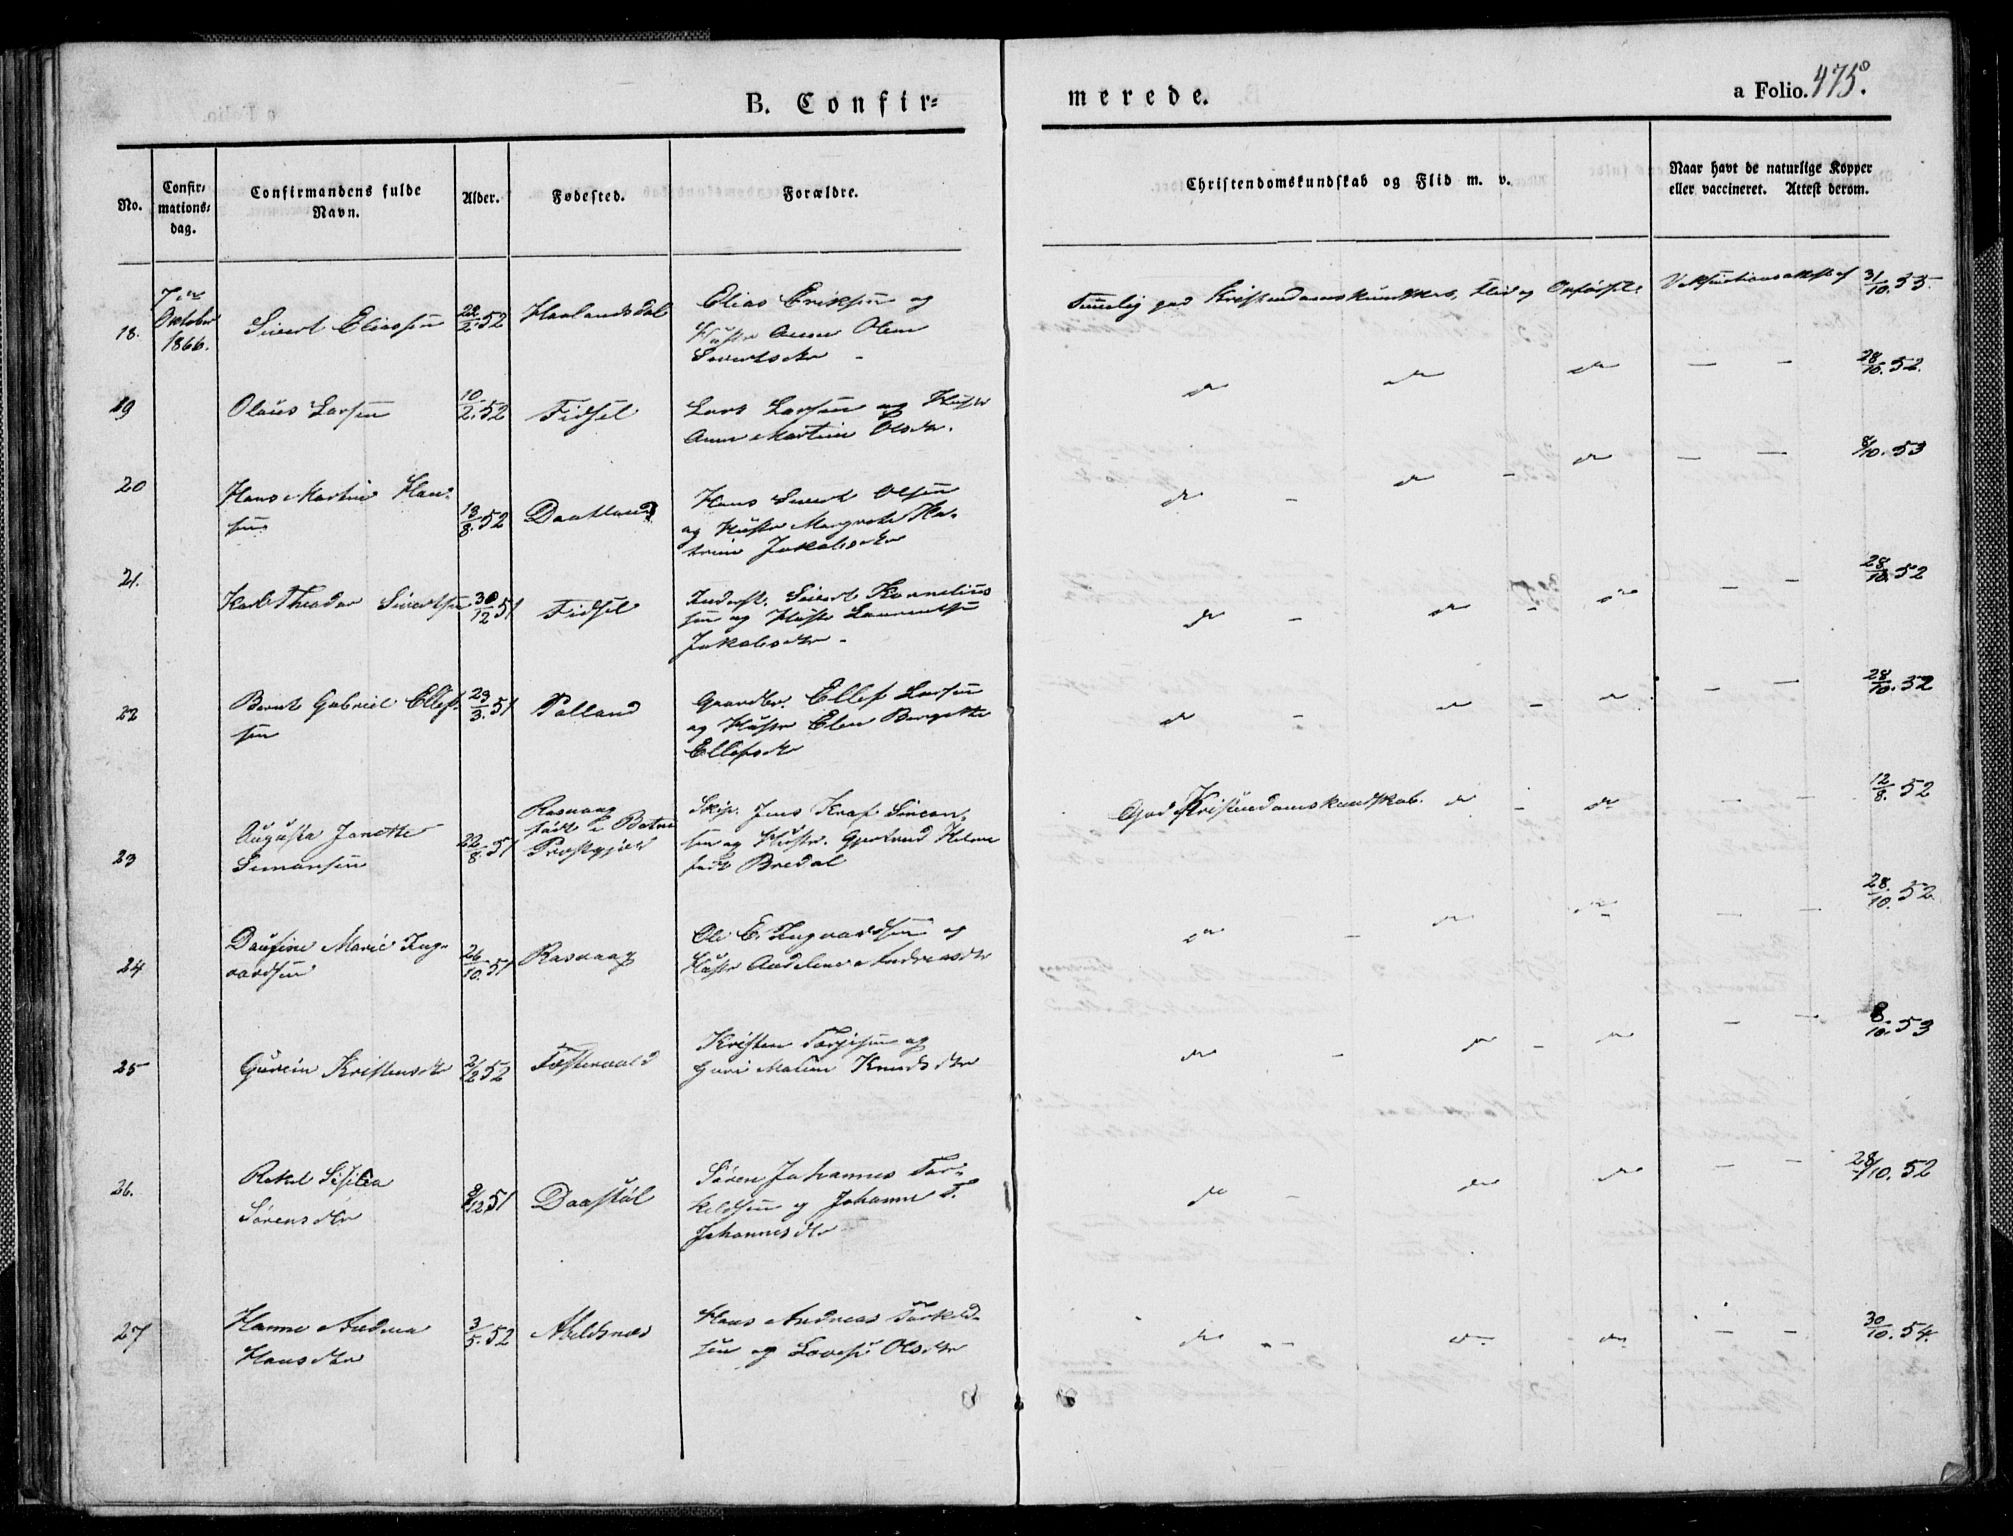 B. Confir=
merede.
a Folio. 475.
No.
Confir=
mations=
dag.
Confirmandens fulde
Navn.
Alder.
Fødested.
Forældre.
Christendomskundskab og Flid m. v.
Naar havt de naturlige Kopper
eller vaccineret. Attest derom.
18.
7de
Oktober
1866.
Sivert Eliassen
22/2. 52
Haalandsdal
Elias Eriksen og
Hustr Anne Olene
Sivertsdtr
Temelig god Kristendomskundskab, Flid og Opførsel
Vaksinationsattest af
31/10. 55.
19
Olaus Larsen
10/2. 52
Fidsel
Lars Larsen og Hustr
Anne Martine Olsdtr.
do do do — —
28/10. 52.
20
Hans Martin Han=
sen
18/8. 52
Daatland
Hans Sivert Olsen
og Hustr Margrete Ka=
trine Jakobsdtr
do - do - do — —
8/10. 53
21.
Karl Theodor Sivertsen
30/12 51
Fidsel
Sivert Kornelius
sen og Hustr
Jakobsdtr -
do - do - do — —
28/10. 52
22
Bernt Gabriel Ellef
sen
29/3. 51
Polland
Gaardbr. Ellef Larsen
og Hustr Elen Bergitte
Ellefsdtr
do - do - do — —
28/10. 52
23
Augusta Janette
Simonsen
22/8. 51
Rasvaag
født i
Præstegjeld
Skip. Jens Simon=
sen og Hustr. Gjertrud
født Bredal
God Kristendomskundskab. do - do
12/8. 52
24
Daufine Marie Ing=
vardsen
26/10. 51
Rasvaag
Ole E. Ingvardsen og
Hustr Andreasdtr
do — do do — —
28./10. 52.
25
Gurine Kristensdtr
2/12 52
Kristen Torjesen og
Guri Malene Knudsdtr
do - do - do — —
8./10. 53
26.
Rakel Sesilia
Sørensdtr
9/12 51
Daastøl
Søren Johannes Tor=
kildsen og Johanne T.
Johannesdtr
do - do do — —
28/10. 52
27
Hanne Andrea
Hansdtr
3/5. 52
Abelsnæs
Hans Andreas Torkild=
sen og Lovise Olsdtr
do - - do - do — —
30/10. 54.